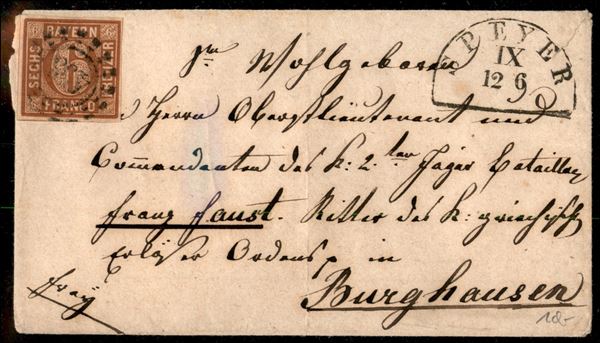 BAYERN
SECHS
6
KREUZER
FRANCO
SPEYER
IX
12 6
Sr. Wohlgeboren
Herrn Oberstlieutenant und
Commandanten des k: 2.ten Jäger Bataillon
Franz Faust. Ritter des k: griechisch
Erlöser Ordens p in
Burghausen